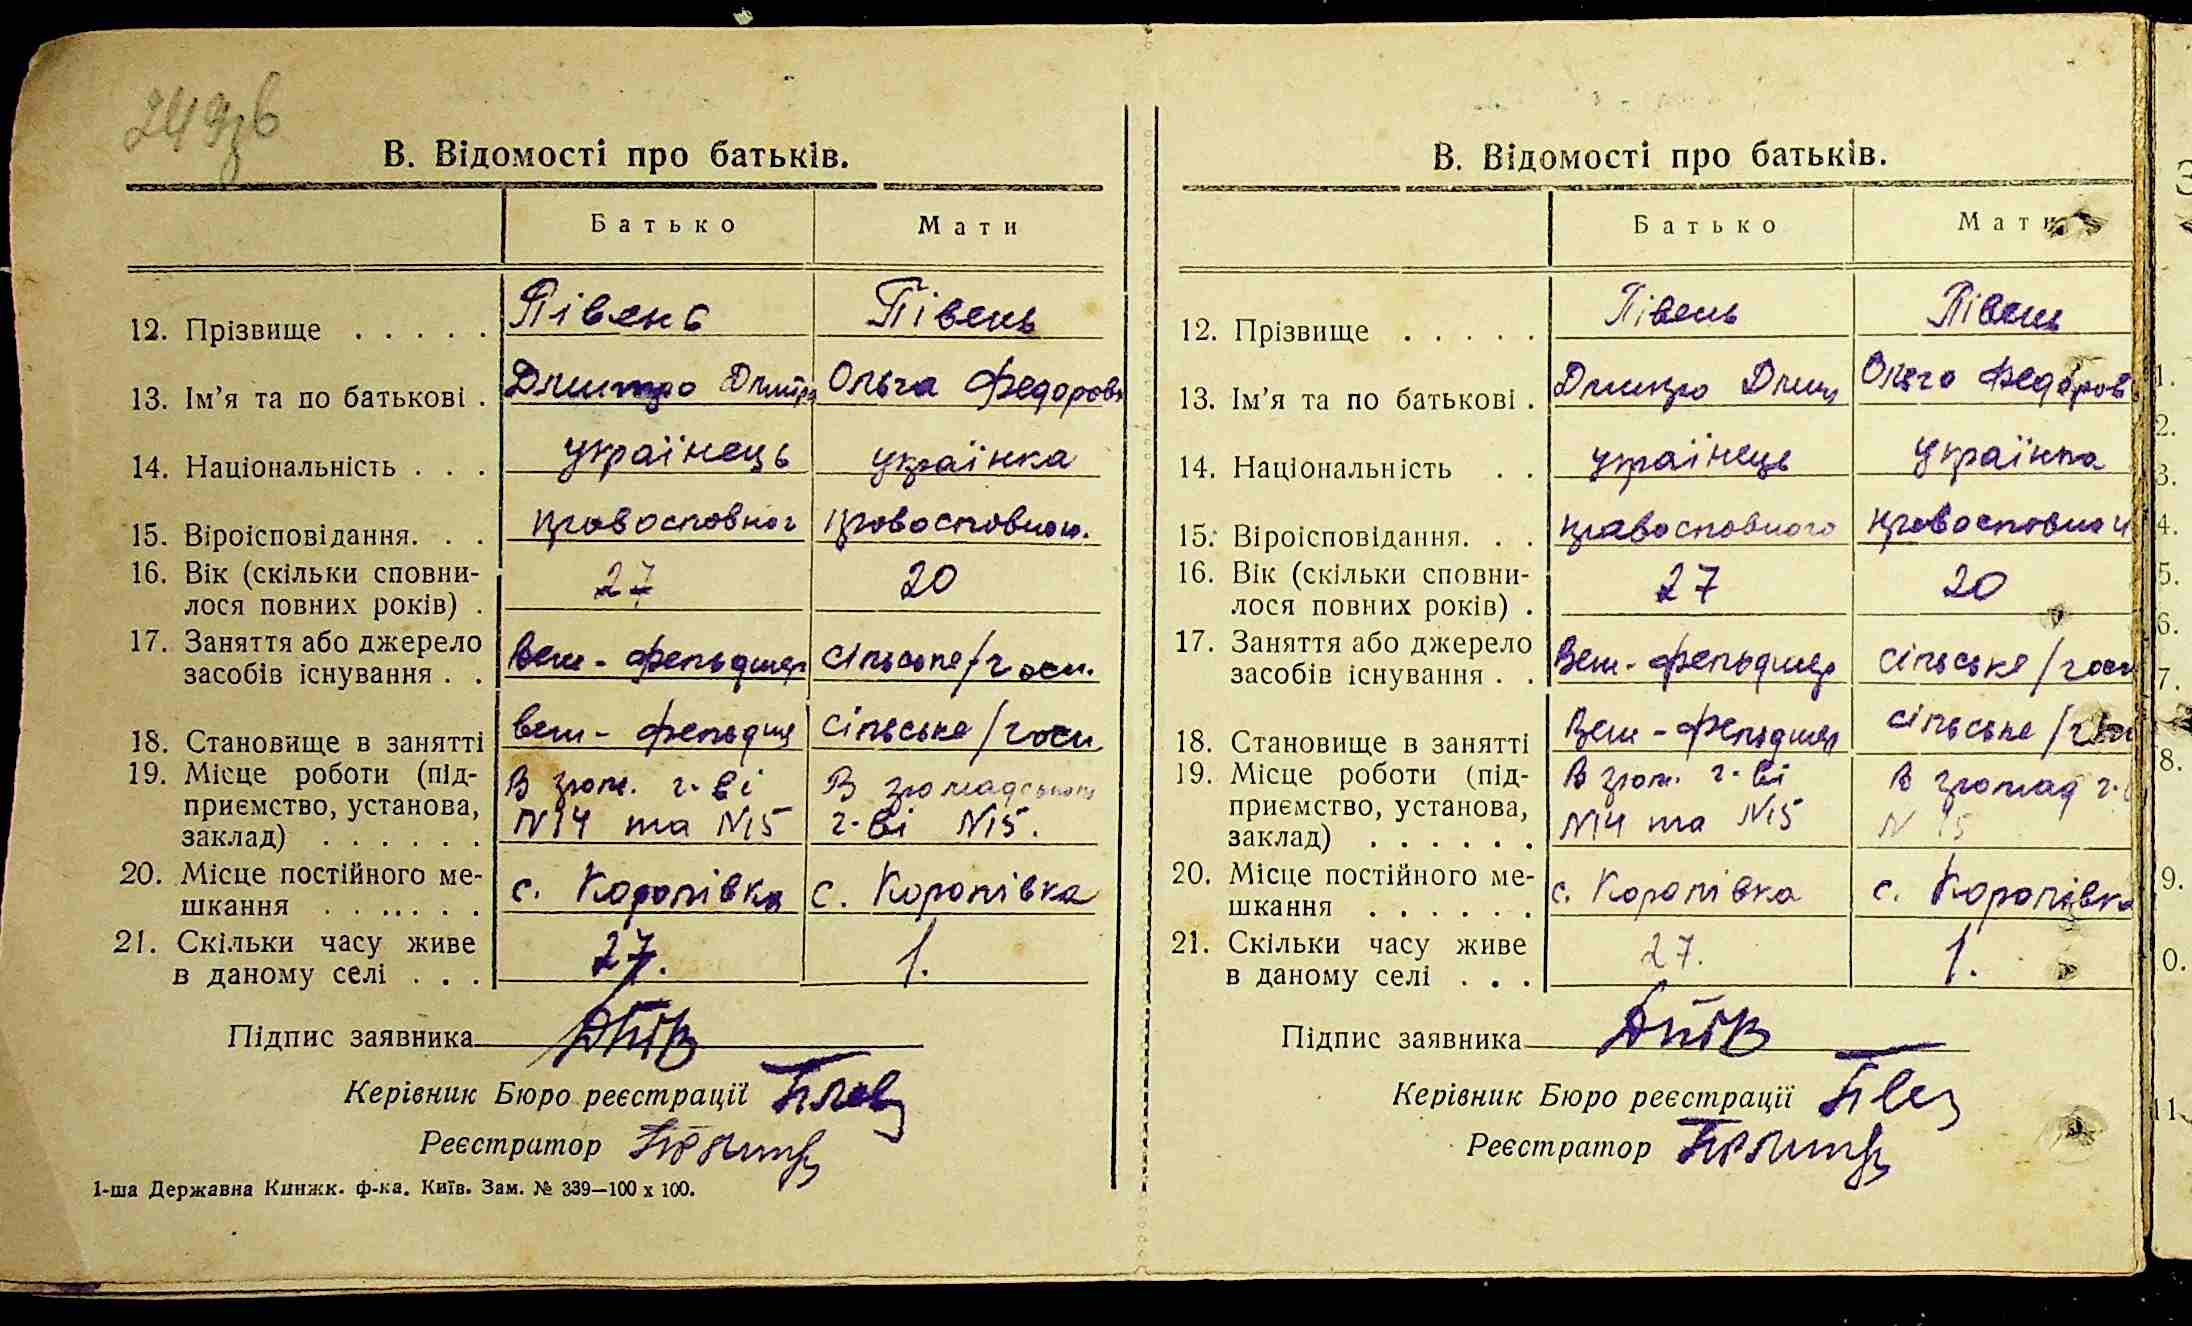 249зв
В. Відомості про батьків.
Батько Мати
12. Прізвище . . . . . Півень Півень
13. Ім'я та по батькові . Дмитро Дмитр Ольга Федоровн
14. Національність . . . українець українка
15. Віроісповідання. . . православног православною.
16. Вік (скільки сповни-
лося повних років) . 27 20
17. Заняття або джерело
засобів існування . . вет-фельдшер сільське/госп.
18. Становище в занятті вет-фельдш сільське/госп
19. Місце роботи (під- В гром. г-ві В громадському
приємство, установа, N14 та N15 г-ві N15.
заклад) . . . . . .
20. Місце постійного ме-
шкання . . . . . . . с. Коропівка с. Коропівка
21. Скільки часу живе
в даному селі . . . 27. 1.
Підпис заявника
Керівник Бюро реєстрації
Реєстратор
1-ша Державна Книжк. ф-ка. Київ. Зам. № 339—100 х 100.
В. Відомості про батьків.
Батько Мати
12. Прізвище . . . . . Півень Півень
13. Ім'я та по батькові . Дмитро Дмит Ольга Федоров
14. Національність . . українець українка
15. Віроісповідання. . . православного православної
16. Вік (скільки сповни-
лося повних років) . 27 20
17. Заняття або джерело
засобів існування . . Вет-фельдшер сільське/госп
18. Становище в занятті Вет-фельдшер сільське/госп
19. Місце роботи (під- В гром. г-ві В громад г-в
приємство, установа, N14 та N15 N 15
заклад) . . . . . .
20. Місце постійного ме-
шкання . . . . . . с. Коропівка с. Коропівка
21. Скільки часу живе
в даному селі . . . 27. 1.
Підпис заявника
Керівник Бюро реєстрації
Реєстратор